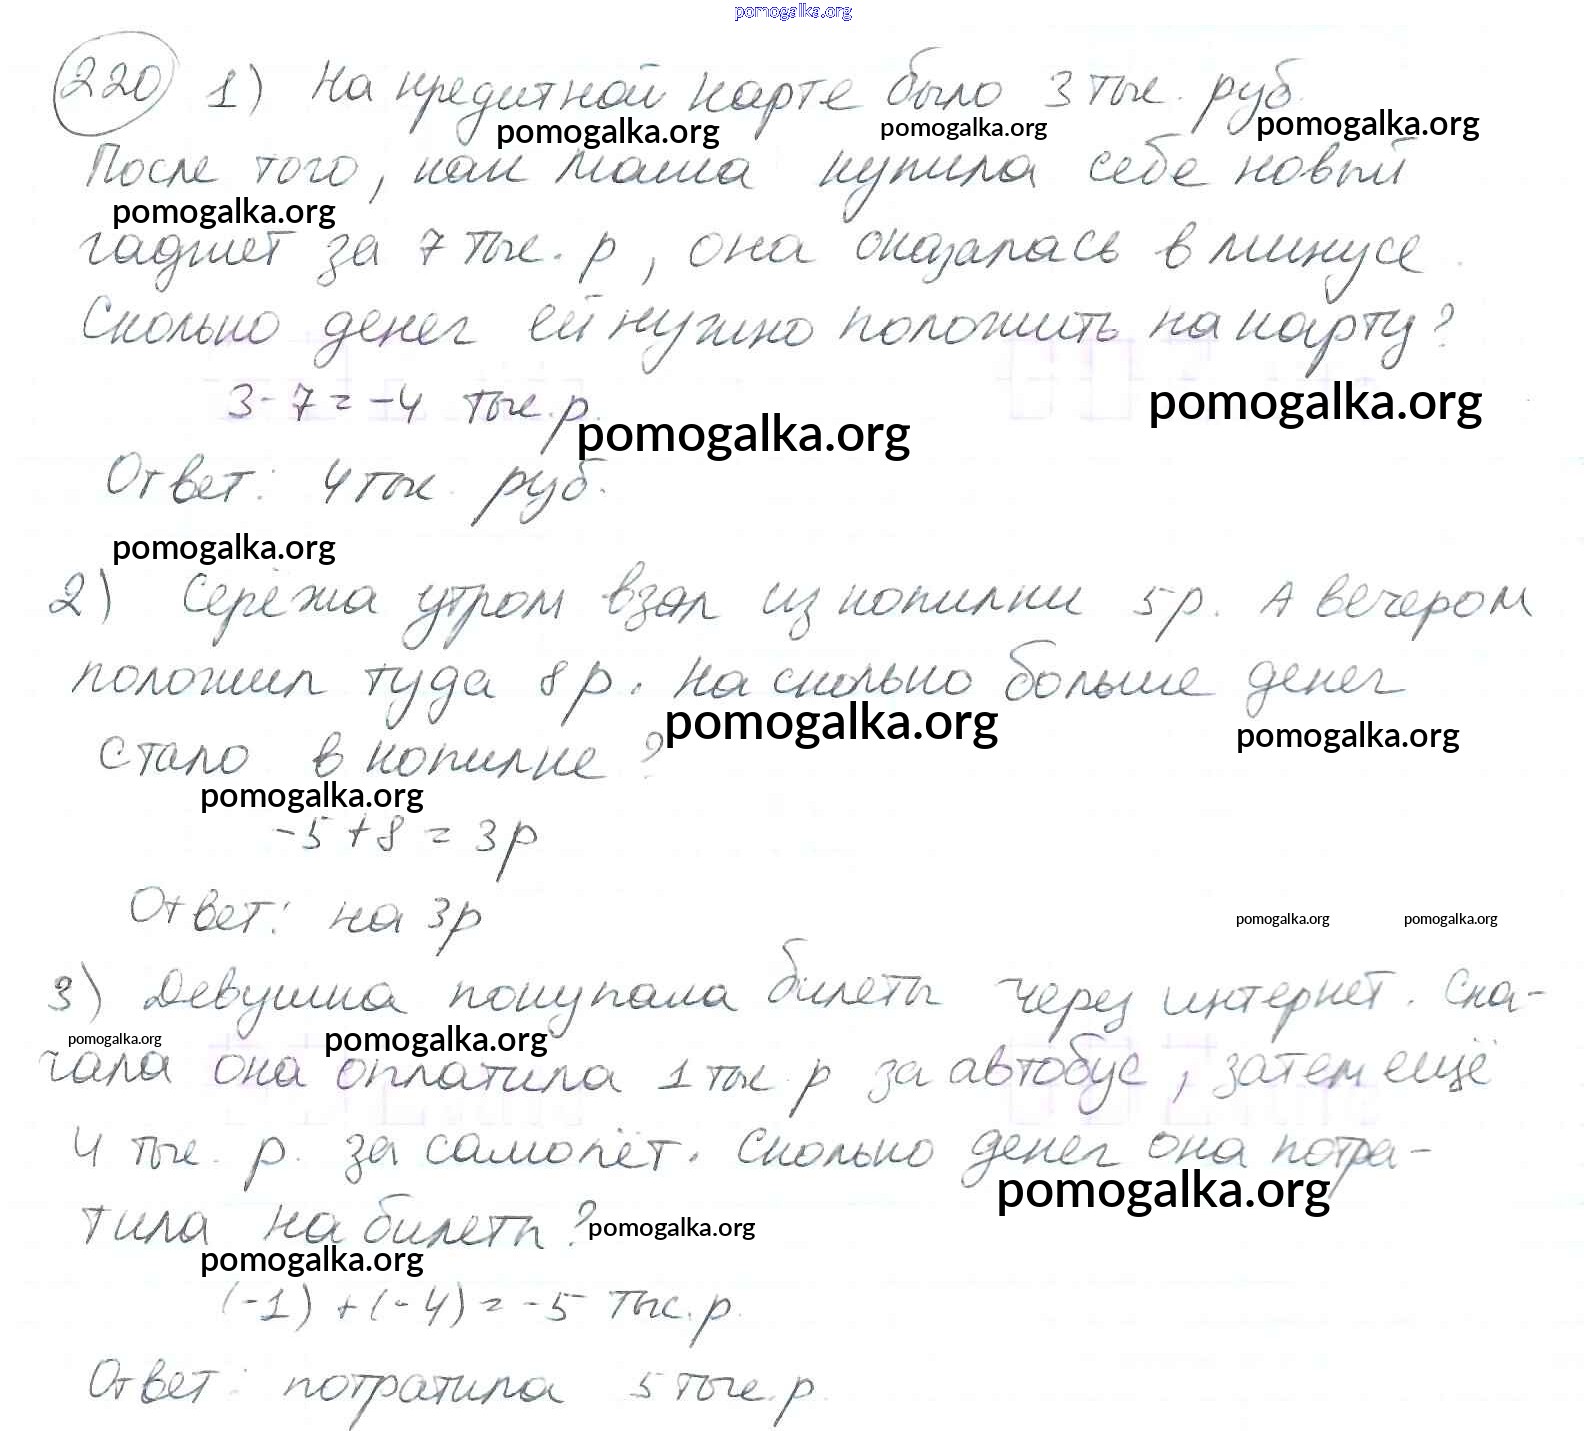 pomogalka.org
220 1) На кредитной карте было 3 тыс. руб.
pomogalka.org pomogalka.org pomogalka.org
После того, как Маша купила себе новый
pomogalka.org
гаджет за 7 тыс. р, она оказалась в минусе.
Сколько денег ей нужно положить на карту?
3-7=-4 тыс. р.
pomogalka.org pomogalka.org
Ответ: 4 тыс. руб.
pomogalka.org
2) Серёжа утром взял из копилки 5р. А вечером
положил туда 8р. На сколько больше денег
pomogalka.org pomogalka.org
стало в копилке?
pomogalka.org
-5+8=3р
Ответ: на 3р
pomogalka.org pomogalka.org
3) Девушка покупала билеты через интернет. Сна-
pomogalka.org pomogalka.org
чала она оплатила 1 тыс. р за автобус, затем ещё
4 тыс. р. за самолёт. Сколько денег она потра-
pomogalka.org
тила на билеты?
pomogalka.org
pomogalka.org
(-1)+(-4)=-5 тыс. р.
Ответ: потратила 5 тыс. р.